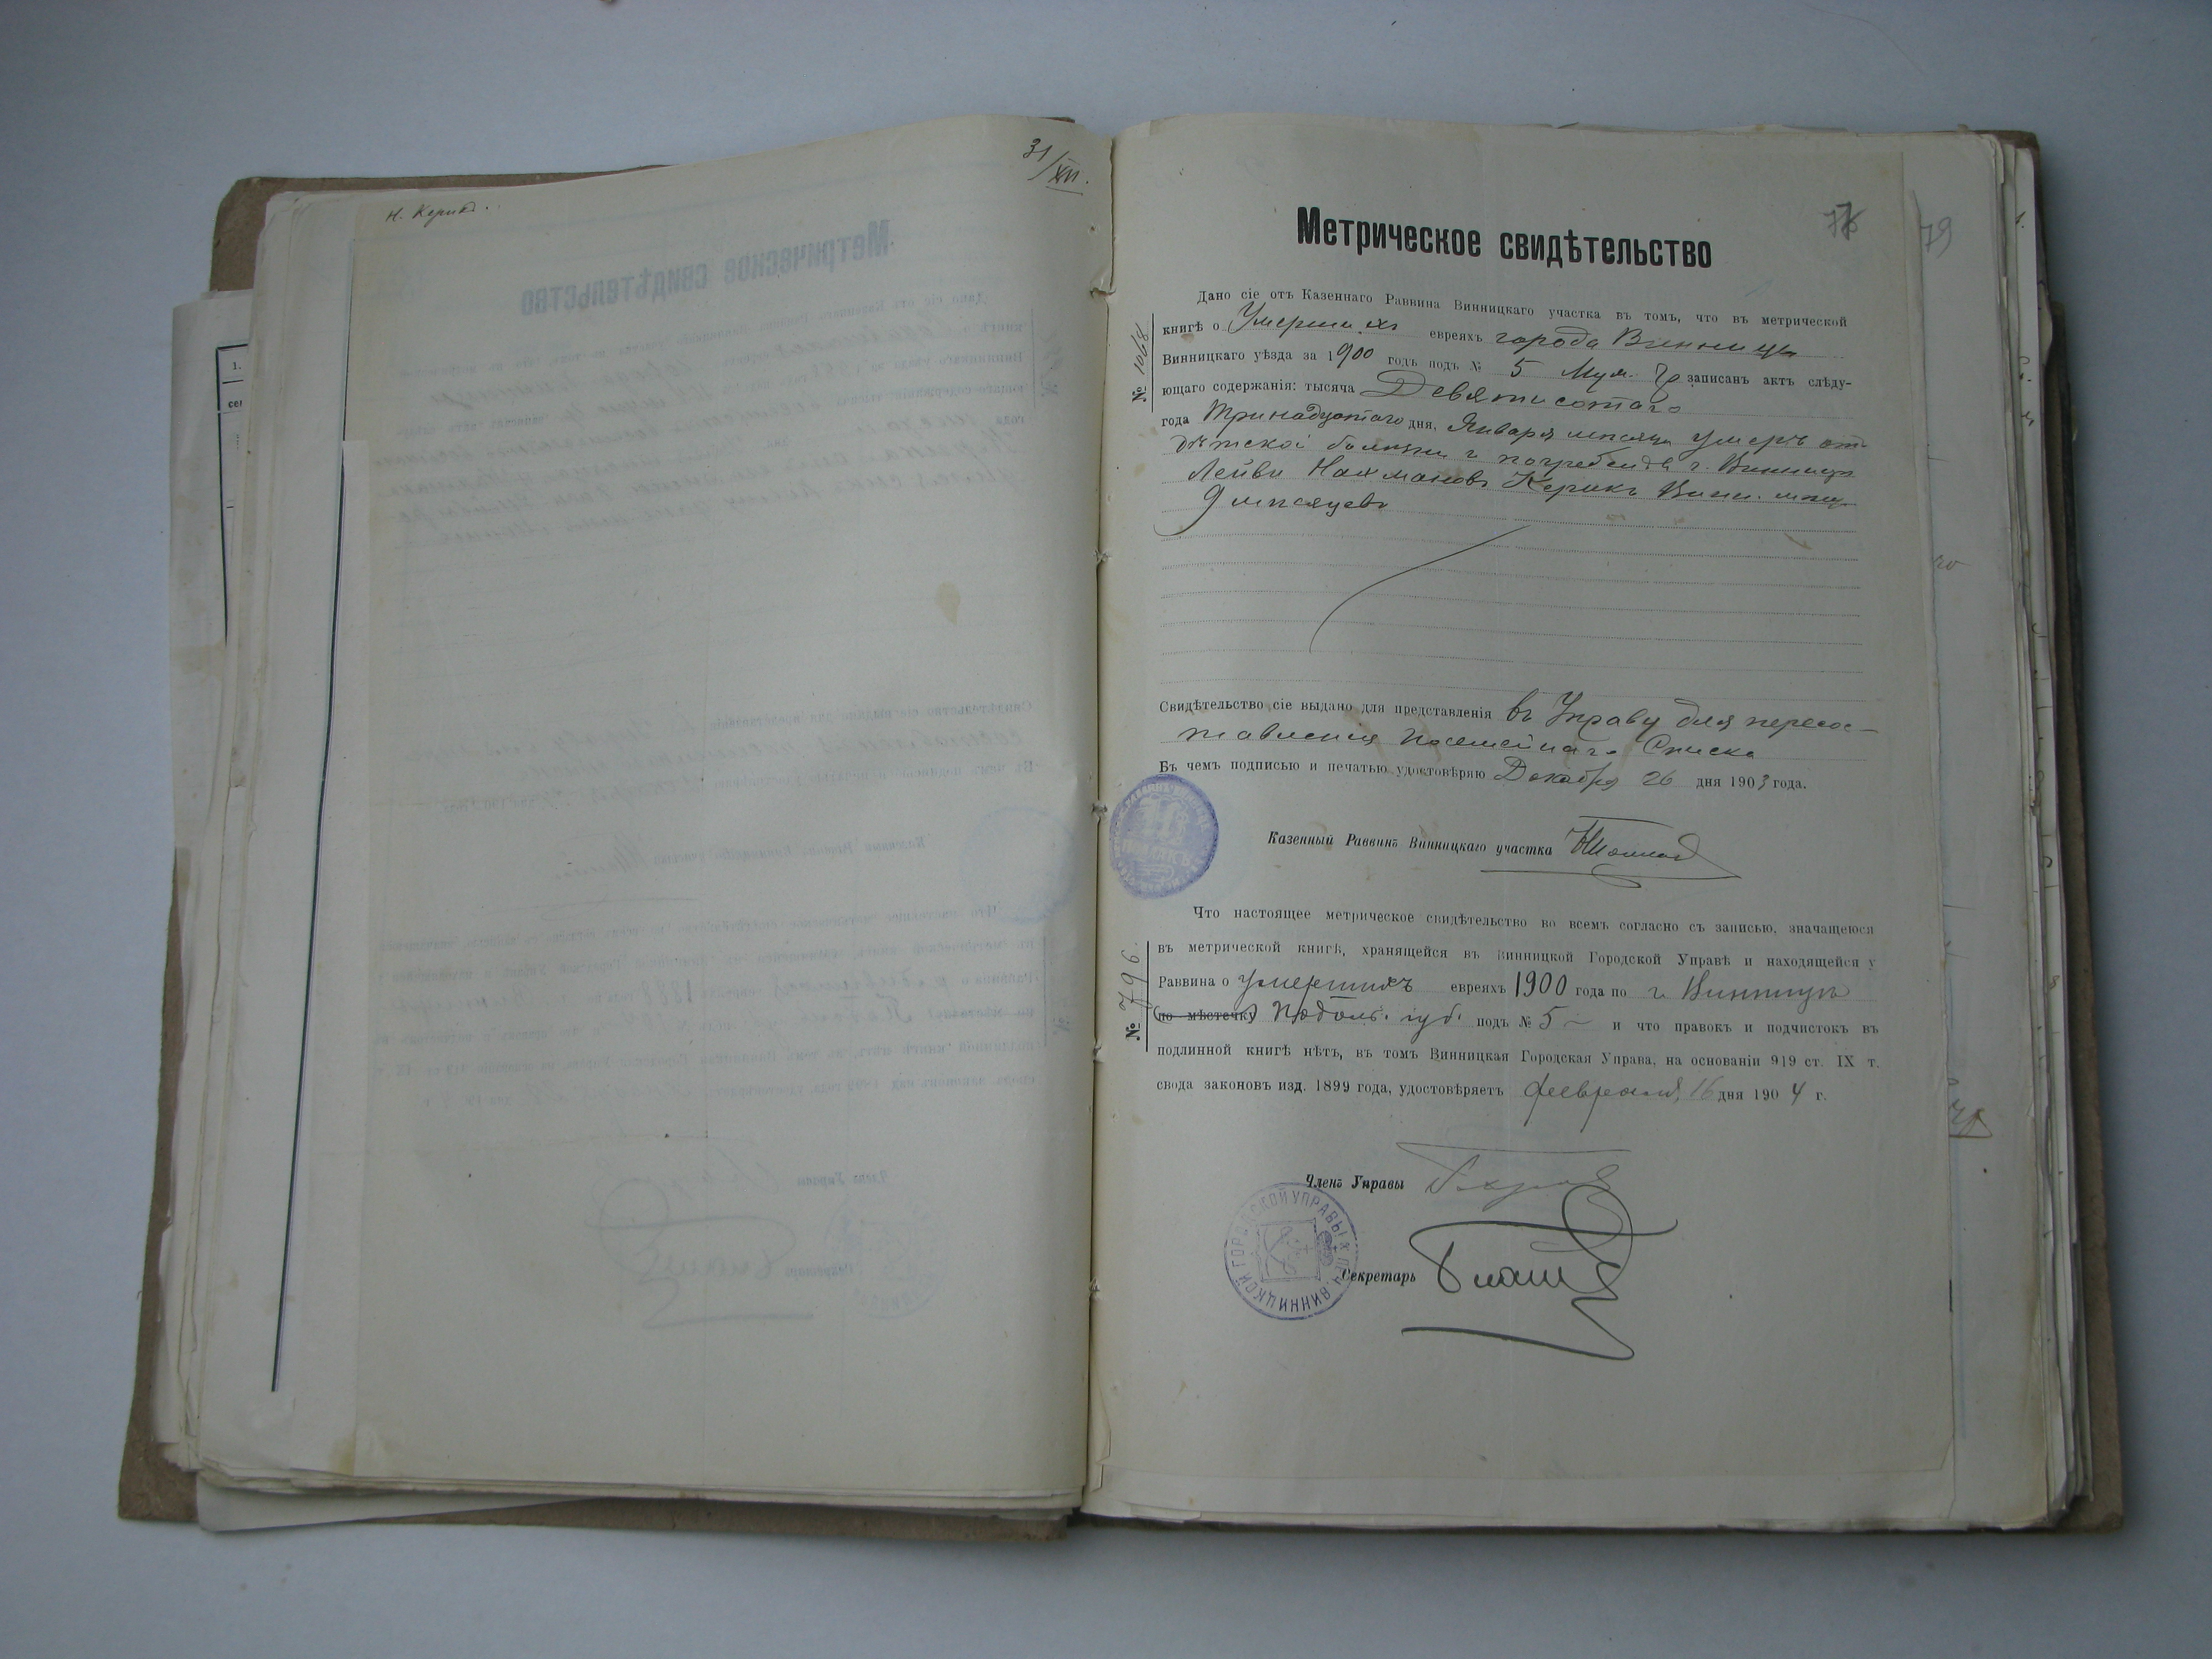 31/XII.
Н. Керик.
77
79
Метрическое свидѣтельство
№ 1068
Дано сіе отъ Казеннаго Раввина Винницкаго участка въ томъ, что въ метрической
книгѣ о Умершихъ евреяхъ города Винницы
Винницкаго уѣзда за 1900 годъ подъ № 5 Муж. гр. записанъ актъ слѣду-
ющаго содержанія: тысяча Девятисотаго
года Тринадцатого дня, Января мѣсяца умеръ отъ
дѣтской болѣзни и погребенъ в г. Винницѣ
Лейви Нахмановъ Керикъ Винн. мѣщ.
9 мѣсяцевъ
Свидѣтельство сіе выдано для представленія въ Управу для пересос-
тавленія Посемейнаго Списка
Въ чемъ подписью и печатью удостовѣряю Декабря 26 дня 1903 года.
Казенный Раввинъ Винницкаго участка
№ 796.
Что настоящее метрическое свидѣтельство во всемъ согласно съ записью, значащеюся
въ метрической книгѣ, хранящейся въ Винницкой Городской Управѣ и находящейся у
Раввина о умершихъ евреяхъ 1900 года по г. Винницѣ
по мѣстечку Подоль. губ. подъ № 5 – и что правокъ и подчистокъ въ
подлинной книгѣ нѣтъ, въ томъ Винницкая Городская Управа, на основаніи 919 ст. IX т.
свода законовъ изд. 1899 года, удостовѣряетъ февраля 16 дня 1904 г.
Членъ Управы
ВИННИЦКОЙ ГОРОДСКОЙ УПРАВЫ
Секретарь